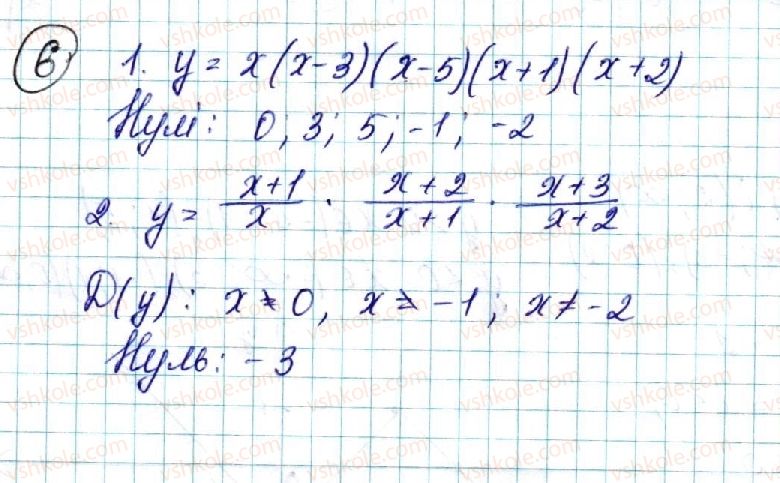 6 1. y = x(x-3)(x-5)(x+1)(x+2)
Нулі: 0; 3; 5; -1; -2
2. y = (x+1)/x · (x+2)/(x+1) · (x+3)/(x+2)
D(y): x ≠ 0, x ≠ -1; x ≠ -2
Нуль: -3